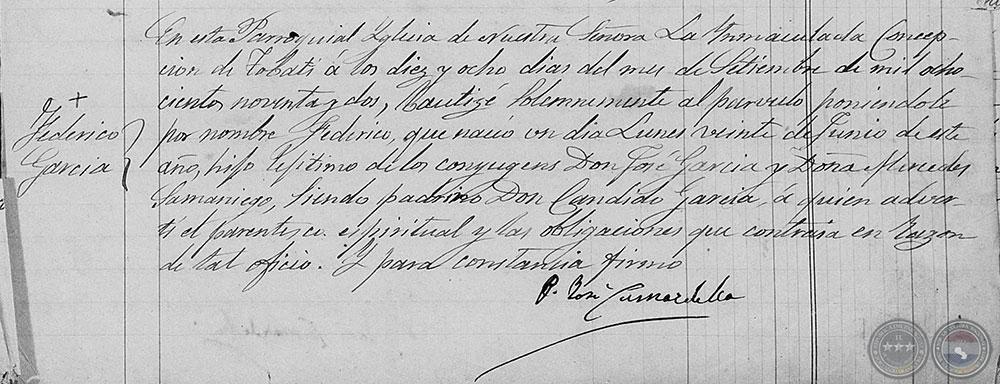 En esta Parroquial Yglesia de Nuestra Señora La Ynmaculada Concep-
cion de Tobatí á los diez y ocho dias del mes de Setiembre de mil ocho-
cientos noventa y dos, Bautizé Solemnemente al parvulo poniendole
por nombre Federico, que nació en dia Lunes veinte de Junio de este
año, hijo lejitimo de los conyugens Don José Garcia y Doña Mercedes
Samaniego, Siendo padrino Don Candido Garcia, á quien adver-
tí el parentesco espiritual y las obligaciones que contraia en razon
de tal oficio. Y para constancia firmo
P. José
+
Federico
Garcia